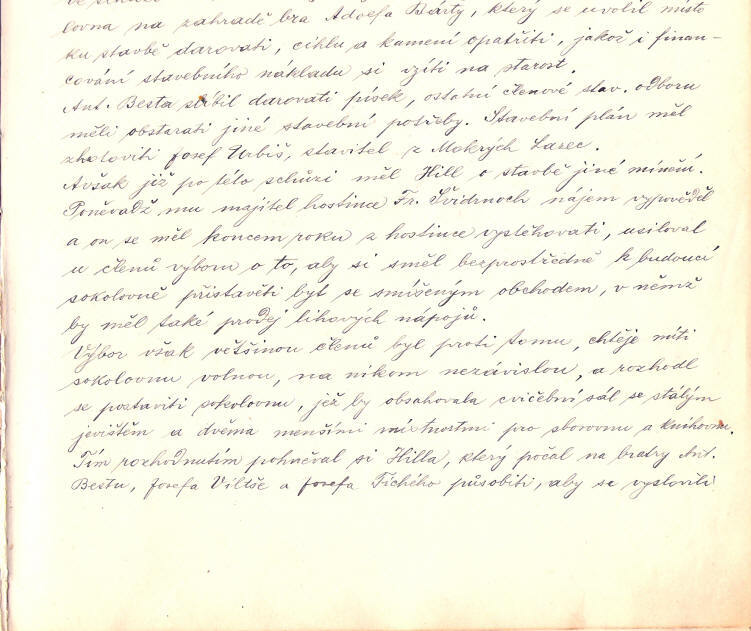 lovna na zahradě bra Adolfa Bárty, který se uvolil místo
ku stavbě darovati, cihlu a kamení opatřiti, jakož i finan-
cování stavebního nákladu si vzíti na starost.
Ant. Besta slíbil darovati písek, ostatní členové stav. odboru
měli obstarati jiné stavební potřeby. Stavební plán měl
zhotoviti Josef Urbiš, stavitel z Mokrých Lazec.
Avšak již po této schůzi měl Hill o stavbě jiné mínění.
Poněvadž mu majitel hostince Fr. Švidrnoch nájem vypověděl
a on se měl koncem roku z hostince vystěhovati, usiloval
u členů výboru o to, aby si směl bezprostředně k budoucí
sokolovně přistavěti byt se smíšeným obchodem, v němž
by měl také prodej lihových nápojů.
Výbor však většinou členů byl proti tomu, chtěje míti
sokolovnu volnou, na nikom nezávislou, a rozhodl
se postaviti sokolovnu, jež by obsahovala cvičební sál se stálým
jevištěm a dvěma menšími místnostmi pro sborovnu a knihovnu.
Tím rozhodnutím pohněval si Hilla, který počal na bratry Ant.
Bestu, Josefa Viltše a Josefa Tichého působiti, aby se vyslovili